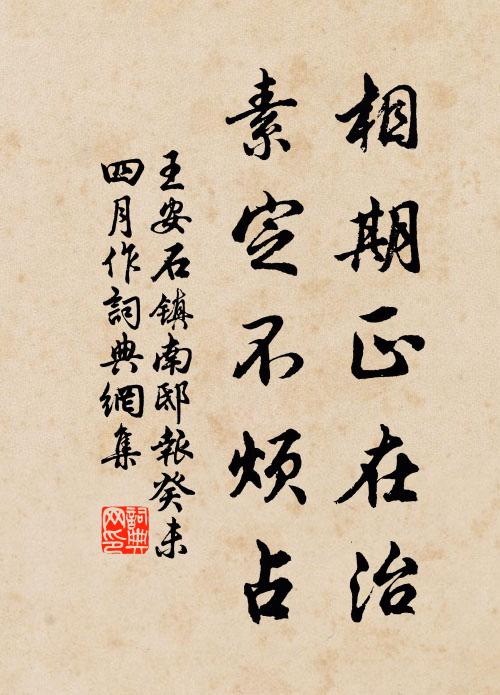 相期正在治
素定不烦占
王安石镇南邸報癸未
四月作詞典網集
詞典網印